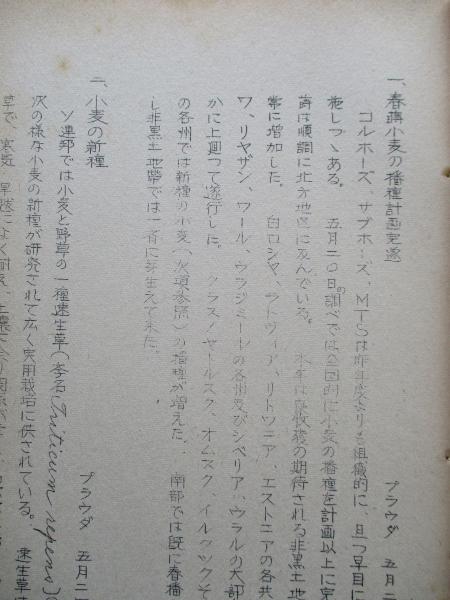 一、春蒔小麦の播種計画完遂
プラウダ 五月二
コルホーズ、サブホーズ、MTSは昨年度よりも組織的に、且つ早目に
施しつゝある。 五月二〇日の調べでは全国的に小麦の播種を計画以上に完
蒔は順調に北方地区に及んでいる。 本年は 収穫の期待される非黒土地
常に増加した。 白ロシヤ、ラトヴィア、リトワニア、エストニアの各共
ワ、リヤザン、ウラジミールの各州及びシベリア、ウラルの大部
かに上廻つて遂行した。 クラスノヤールスク、オムスク、イルクックそ
の各州では新種の小麦(次項参照)の播種が増えた。 南部では既に春播
し非黒土地帶では一斉に芽生えて来た。
二、小麦の新種
プラウダ 五月二
ソ連邦では小麦と野草の一種速生草(学名Triticum repens)
次の様な小麦の新種が研発されて広く実用栽培に供されている。 速生草は
草で、寒気、旱魃によく耐え、土壌に